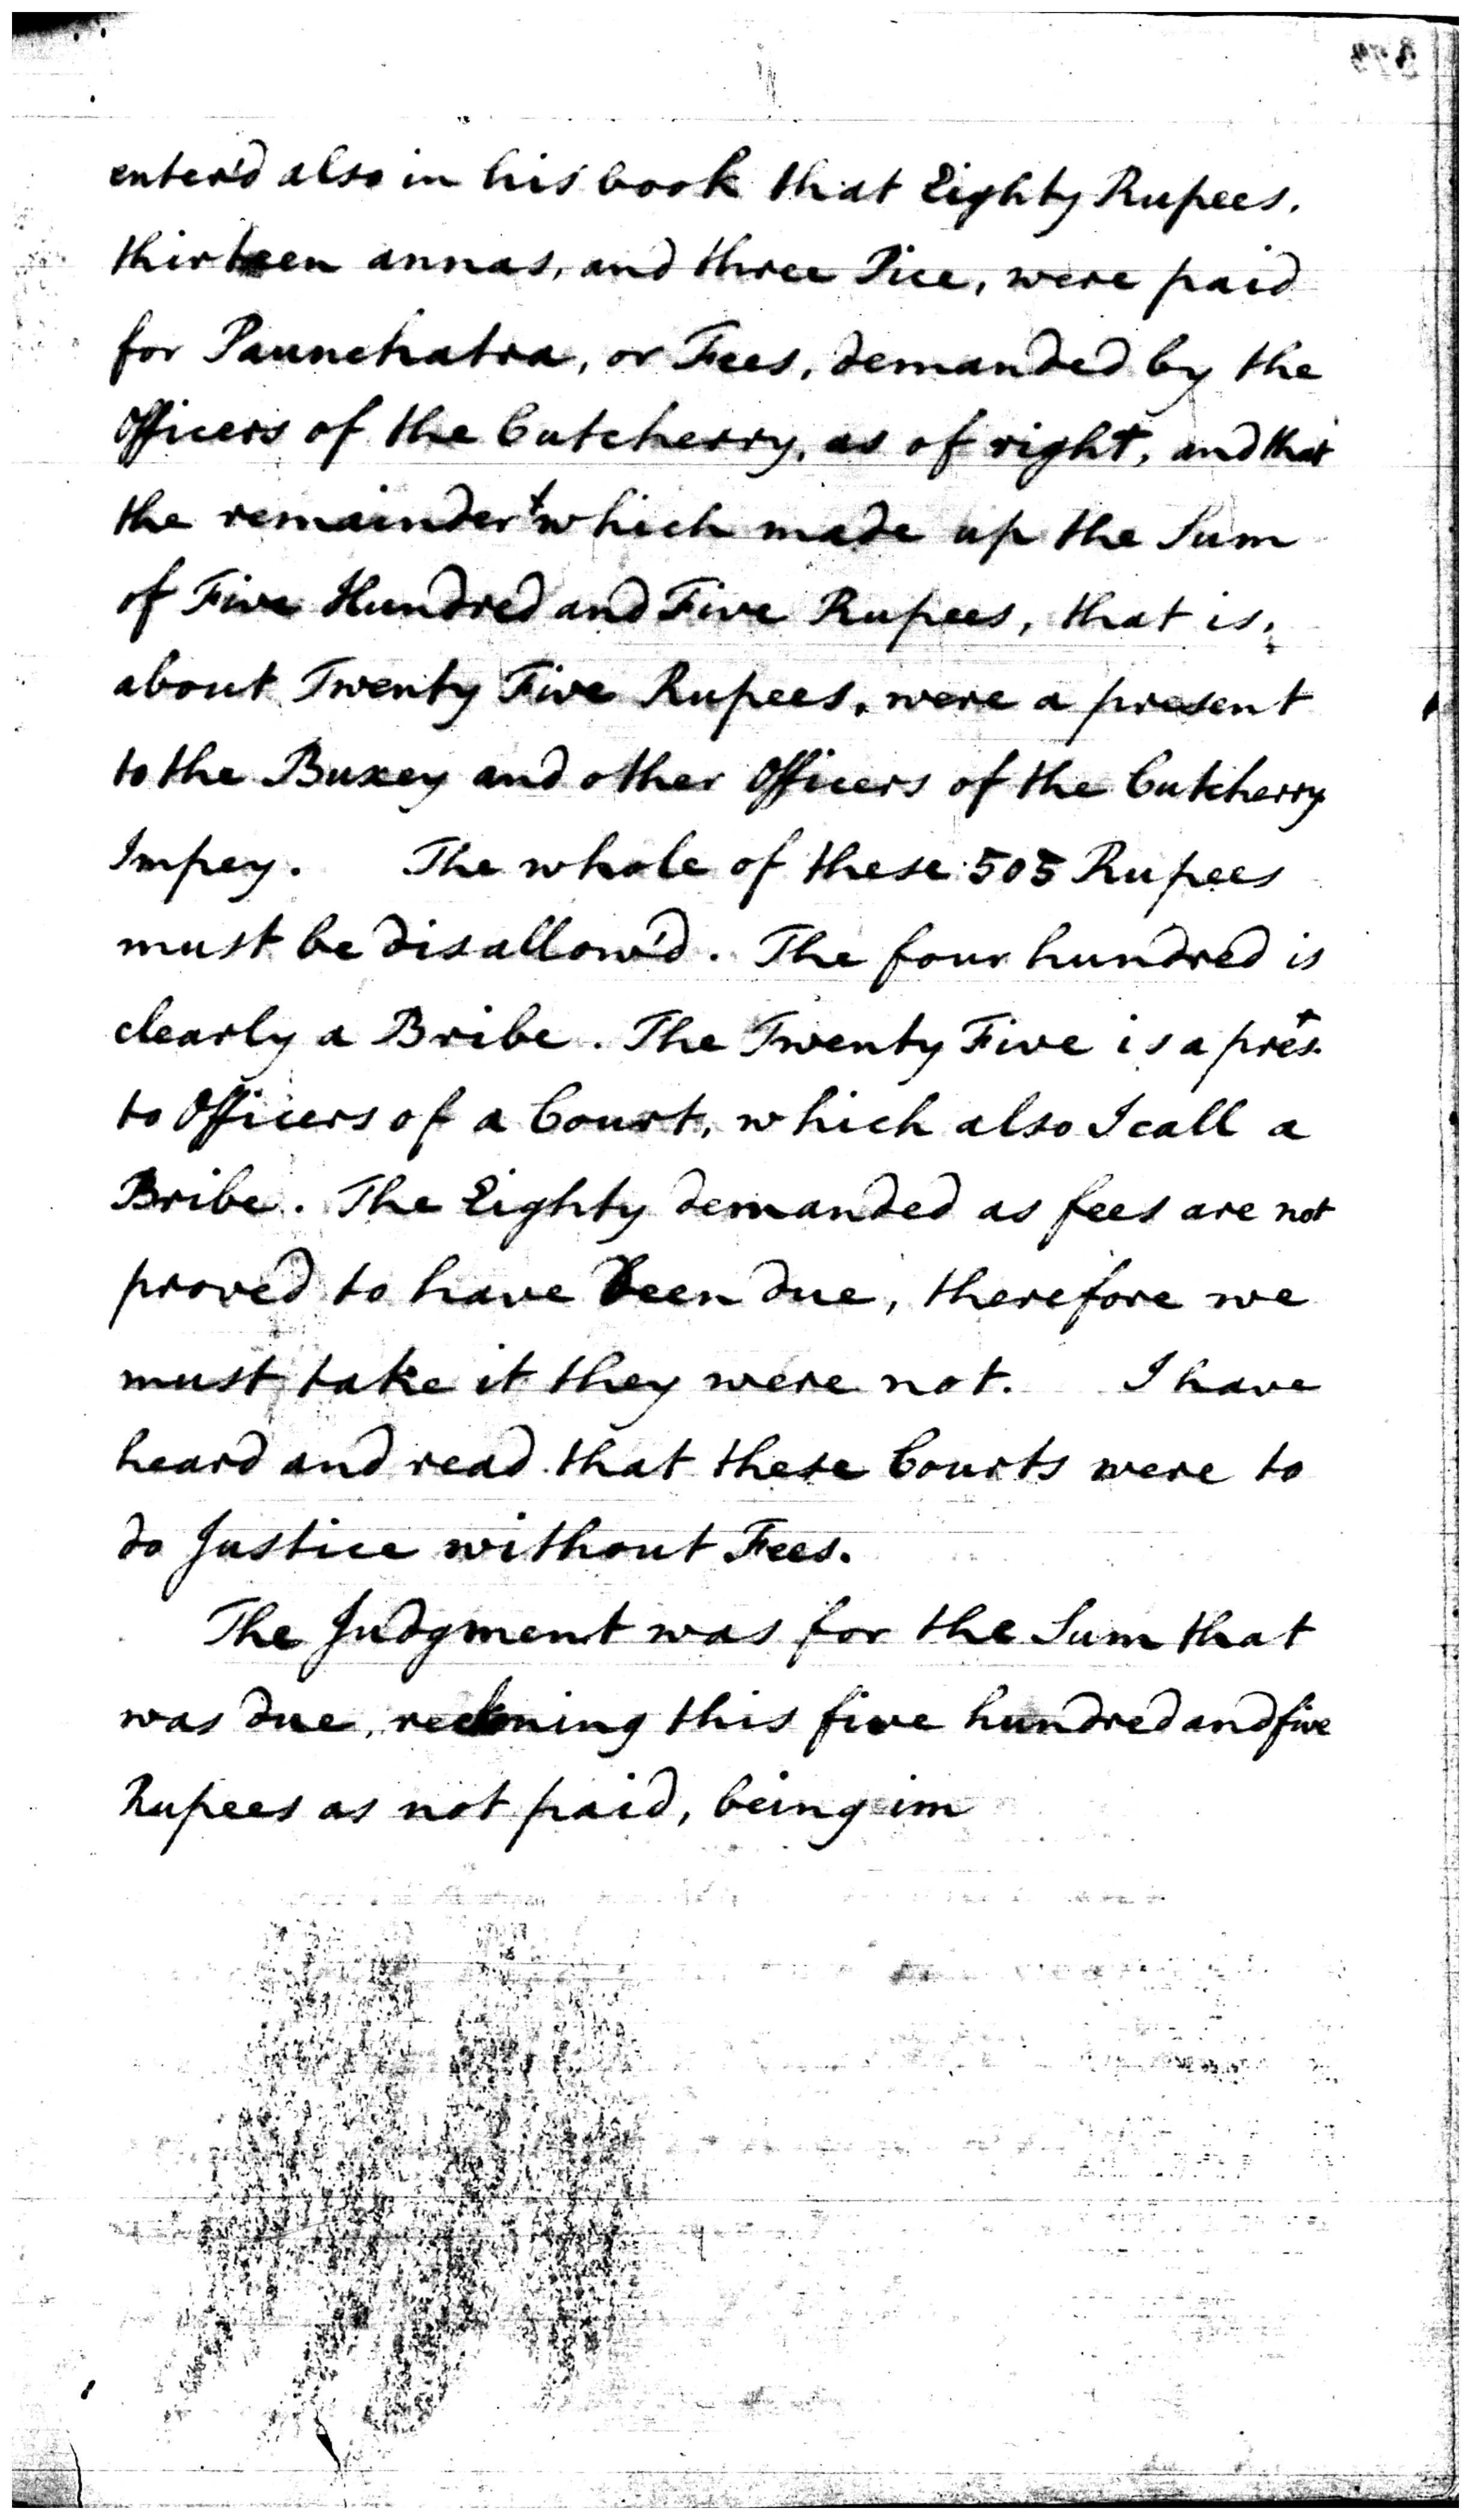 enter'd also in his book that Eighty Rupees,
thirteen annas, and three Pice, were paid
for Paunchatra, or Fees, demanded by the
Officers of the Cutcherry, as of right, and that
the remainder which made up the Sum
of Five Hundred and Five Rupees, that is,
about Twenty Five Rupees, were a present
to the Buxey and other Officers of the Cutcherry
Impey. The whole of these 505 Rupees
must be disallow'd. The four hundred is
clearly a Bribe. The Twenty Five is a prest.
to Officers of a Court, which also I call a
Bribe. The Eighty demanded as fees are not
proved to have been due, therefore we
must take it they were not. I have
heard and read that these Courts were to
do Justice without Fees.
The Judgment was for the Sum that
was due, reckoning this five hundred and five
Rupees as not paid, being im